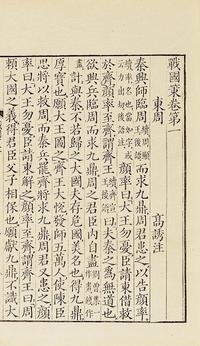 戰國策卷第一
東周 高誘注
秦興師臨周而求九鼎周君患之以告顏率
率名也當如字或云力出切後語注曰大王勿憂臣請東借救
於齊顏率至齊謂齊王曰夫秦之為無道也
欲興兵臨周而求九鼎周之君臣內自盡
計與秦不若歸之大國夫存危國美名也得九鼎
厚寶也願大王圖之齊王大悅發師五萬人使陳臣
思將以救周而秦兵罷齊將求九鼎周君又患之顏
率曰大王勿憂臣請東解之顏率至齊謂齊王曰周
賴大國之義得君臣父子相保也願獻九鼎不識大